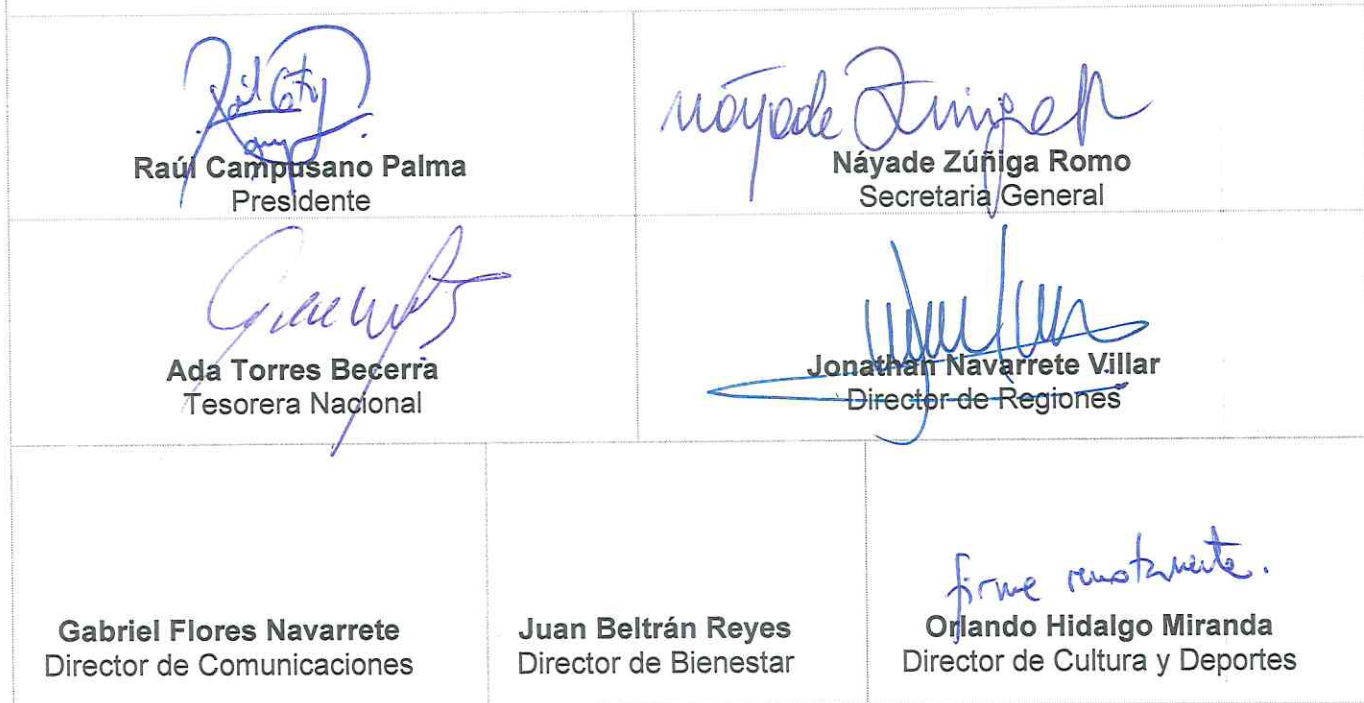 Raúl Campusano Palma
Presidente
náyade Zuniga
Náyade Zúñiga Romo
Secretaria General
Ada Torres Becerra
Tesorera Nacional
Jonathan Navarrete Villar
Director de Regiones
Gabriel Flores Navarrete
Director de Comunicaciones
Juan Beltrán Reyes
Director de Bienestar
firme remotamente.
Orlando Hidalgo Miranda
Director de Cultura y Deportes